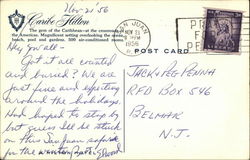 Nov 21 '56
Caribe Hilton
The gem of the Caribbean—at the crossroads of
the Americas. Magnificent setting overlooking the ocean,
beach, pool and gardens. 300 air-conditioned rooms
SAN JUAN
NOV 21
PM
1956
PR
POST CARD
Hey you all -
Got it all counted
and buried? We are
just fine and resting
around the holidays.
Had hoped to stop by
but guess I'll be stuck
on this San Juan safari
in the winter.
Jack & Peg Penna
RFD Box 546
Belmar
N.J.